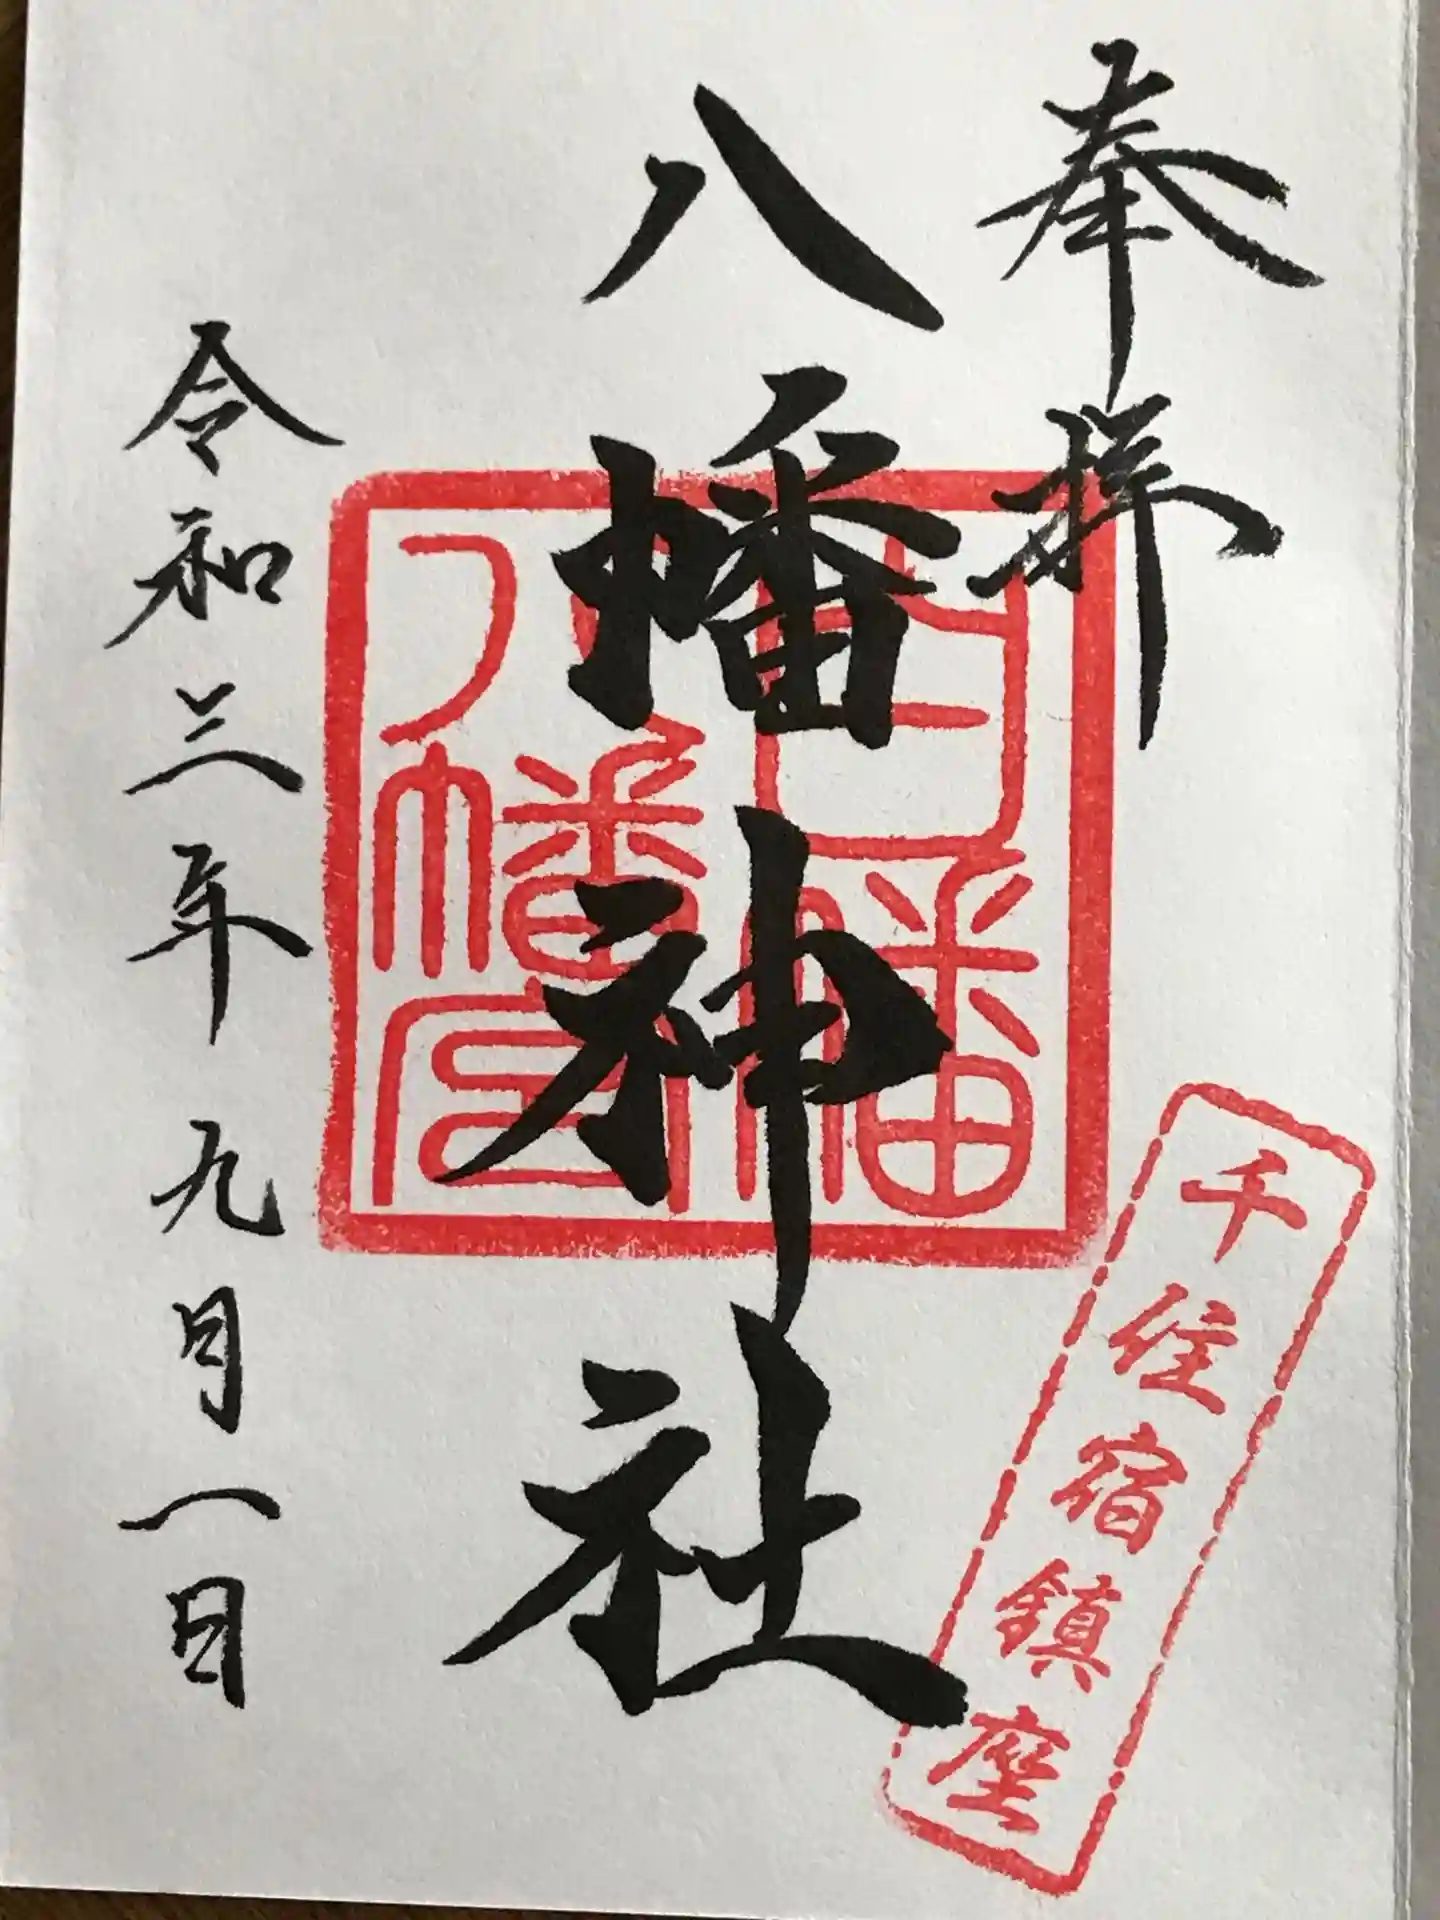 奉拝
千住宿鎮座
八幡神社
白幡
八幡宮
令和三年九月一日